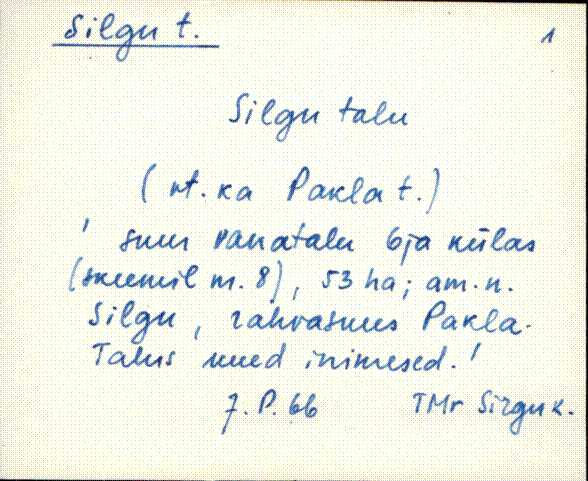 Silgu t.
1
Silgu talu
( vt. ka Pakla t.)
' suur vanatalu Oja külas
(skeemil nr. 8), 53 ha; am. n.
Silgu, rahvasuus Pakla.
Talus uued inimesed.'
J. P. 66 TMr Sirgu k.